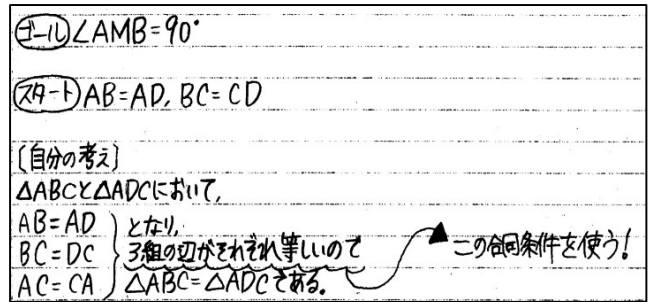 ゴール ∠AMB=90°
スタート AB=AD, BC=CD
〔自分の考え〕
△ABCと△ADCにおいて,
AB=AD
BC=DC
AC=CA
となり,
3組の辺がそれぞれ等しいので
△ABC=△ADCである。
この合同条件を使う!